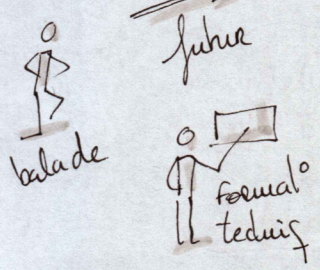 futur
balade
Format°
techniq